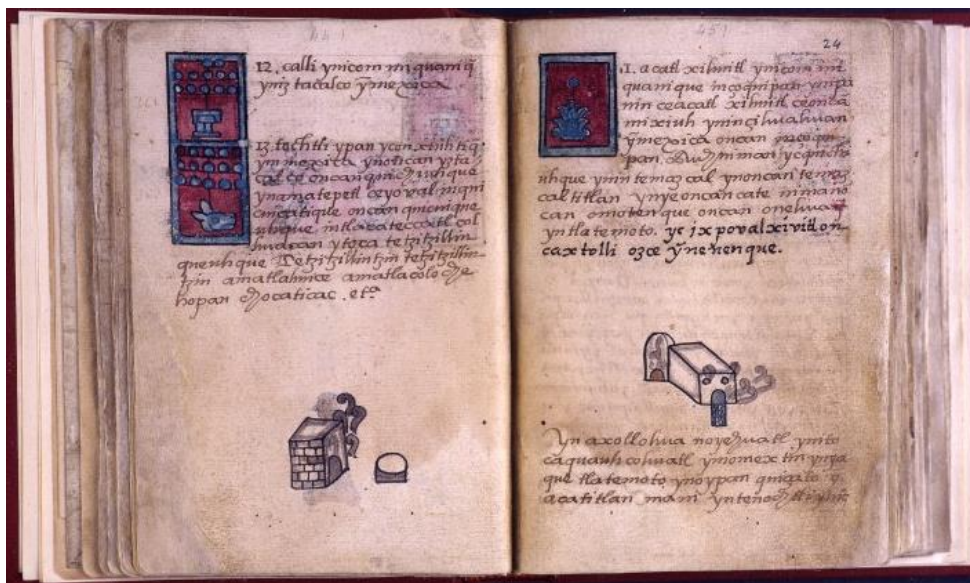 12. calli ynicom miquaniq̃
yniz tacalco ỹmexica
13. tochtli ypan ycon xiuhtique
ym mexica ynotican yzta
calco oncan quichiuhque
ynamatepetl ceyoval inqui
cuicatique oncan
intlacatecatl col
huacan yteca tetzitzillin
quenhque Tetzitzillintzin tetzitzillin
tzin amatlahuice amatlacolo
hopan chocaticac. et.ª
24
1. acatl xihuitl ynicom mi
quanique inçoquipan ynipa
nin ceacatl xihuitl
mixiuh yninçihuahuan
ỹmexica oncan
pan.
uhque ymin temazcal ynoncan temaz
caltitlan ynyeoncan cate inmano
can omotenque oncan onehua
yntlatemoto. yc jx povalxivitl on
caxtolli ozce ỹnenenque.
Yn axollohua noyehuatl ynito
ca quauhcohuatl ỹnomextin ynya
que tlatemoto ynoypan quiçato
acatitlan mani yntenochtli